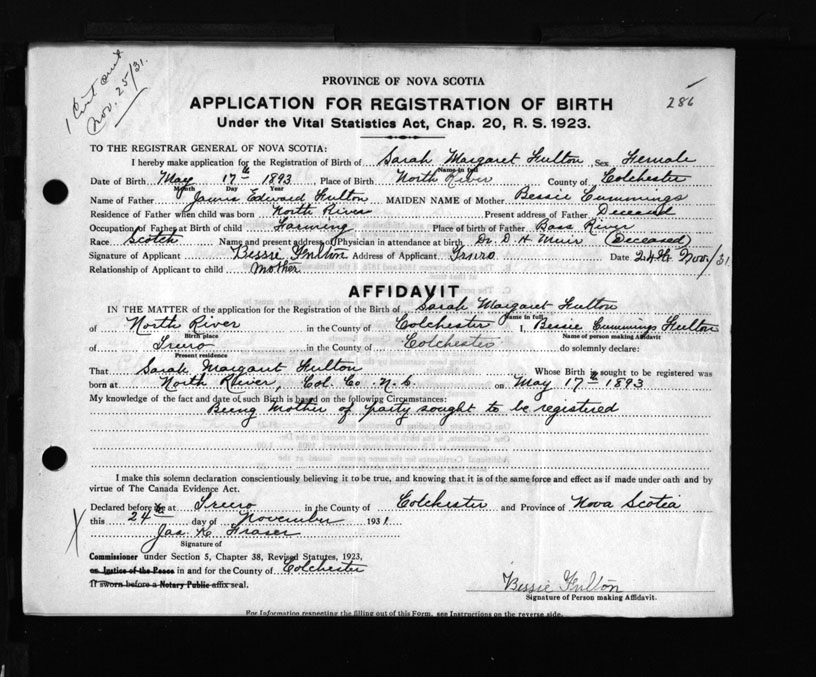 1 Cert sent
Nov. 25/31.
286
PROVINCE OF NOVA SCOTIA
APPLICATION FOR REGISTRATION OF BIRTH
Under the Vital Statistics Act, Chap. 20, R. S. 1923.
TO THE REGISTRAR GENERAL OF NOVA SCOTIA:
I hereby make application for the Registration of Birth of Sarah Margaret Fulton, Sex Female
Name in full
Date of Birth May 17th 1893 Place of Birth North River County of Colchester
Month Day Year
Name of Father James Edward Fulton MAIDEN NAME of Mother Bessie Cummings
Residence of Father when child was born North River Present address of Father Deceased
Occupation of Father at Birth of child Farming Place of birth of Father Bass River
Race Scotch Name and present address of Physician in attendance at birth Dr. D. H. Muir (Deceased)
Signature of Applicant Bessie Fulton Address of Applicant Truro Date 24th Nov./31
Relationship of Applicant to child Mother
AFFIDAVIT
IN THE MATTER of the application for the Registration of the Birth of Sarah Margaret Fulton
Name in full
of North River in the County of Colchester I, Bessie Cummings Fulton
Birth place Name of person making Affidavit
of Truro in the County of Colchester do solemnly declare:
Present residence
That Sarah Margaret Fulton Whose Birth is sought to be registered was
born at North River, Col. Co. N.S. on May 17th 1893
My knowledge of the fact and date of such Birth is based on the following Circumstances:
Being Mother of party sought to be registered
I make this solemn declaration conscientiously believing it to be true, and knowing that it is of the same force and effect as if made under oath and by
virtue of The Canada Evidence Act.
Declared before me at Truro in the County of Colchester and Province of Nova Scotia
this 24th day of November 1931
X Jas. K. Fraser
Signature of
Commissioner under Section 5, Chapter 38, Revised Statutes, 1923,
or Justice of the Peace in and for the County of Colchester
If sworn before a Notary Public affix seal.
Bessie Fulton
Signature of Person making Affidavit.
For Information respecting the filling out of this Form, see Instructions on the reverse side.